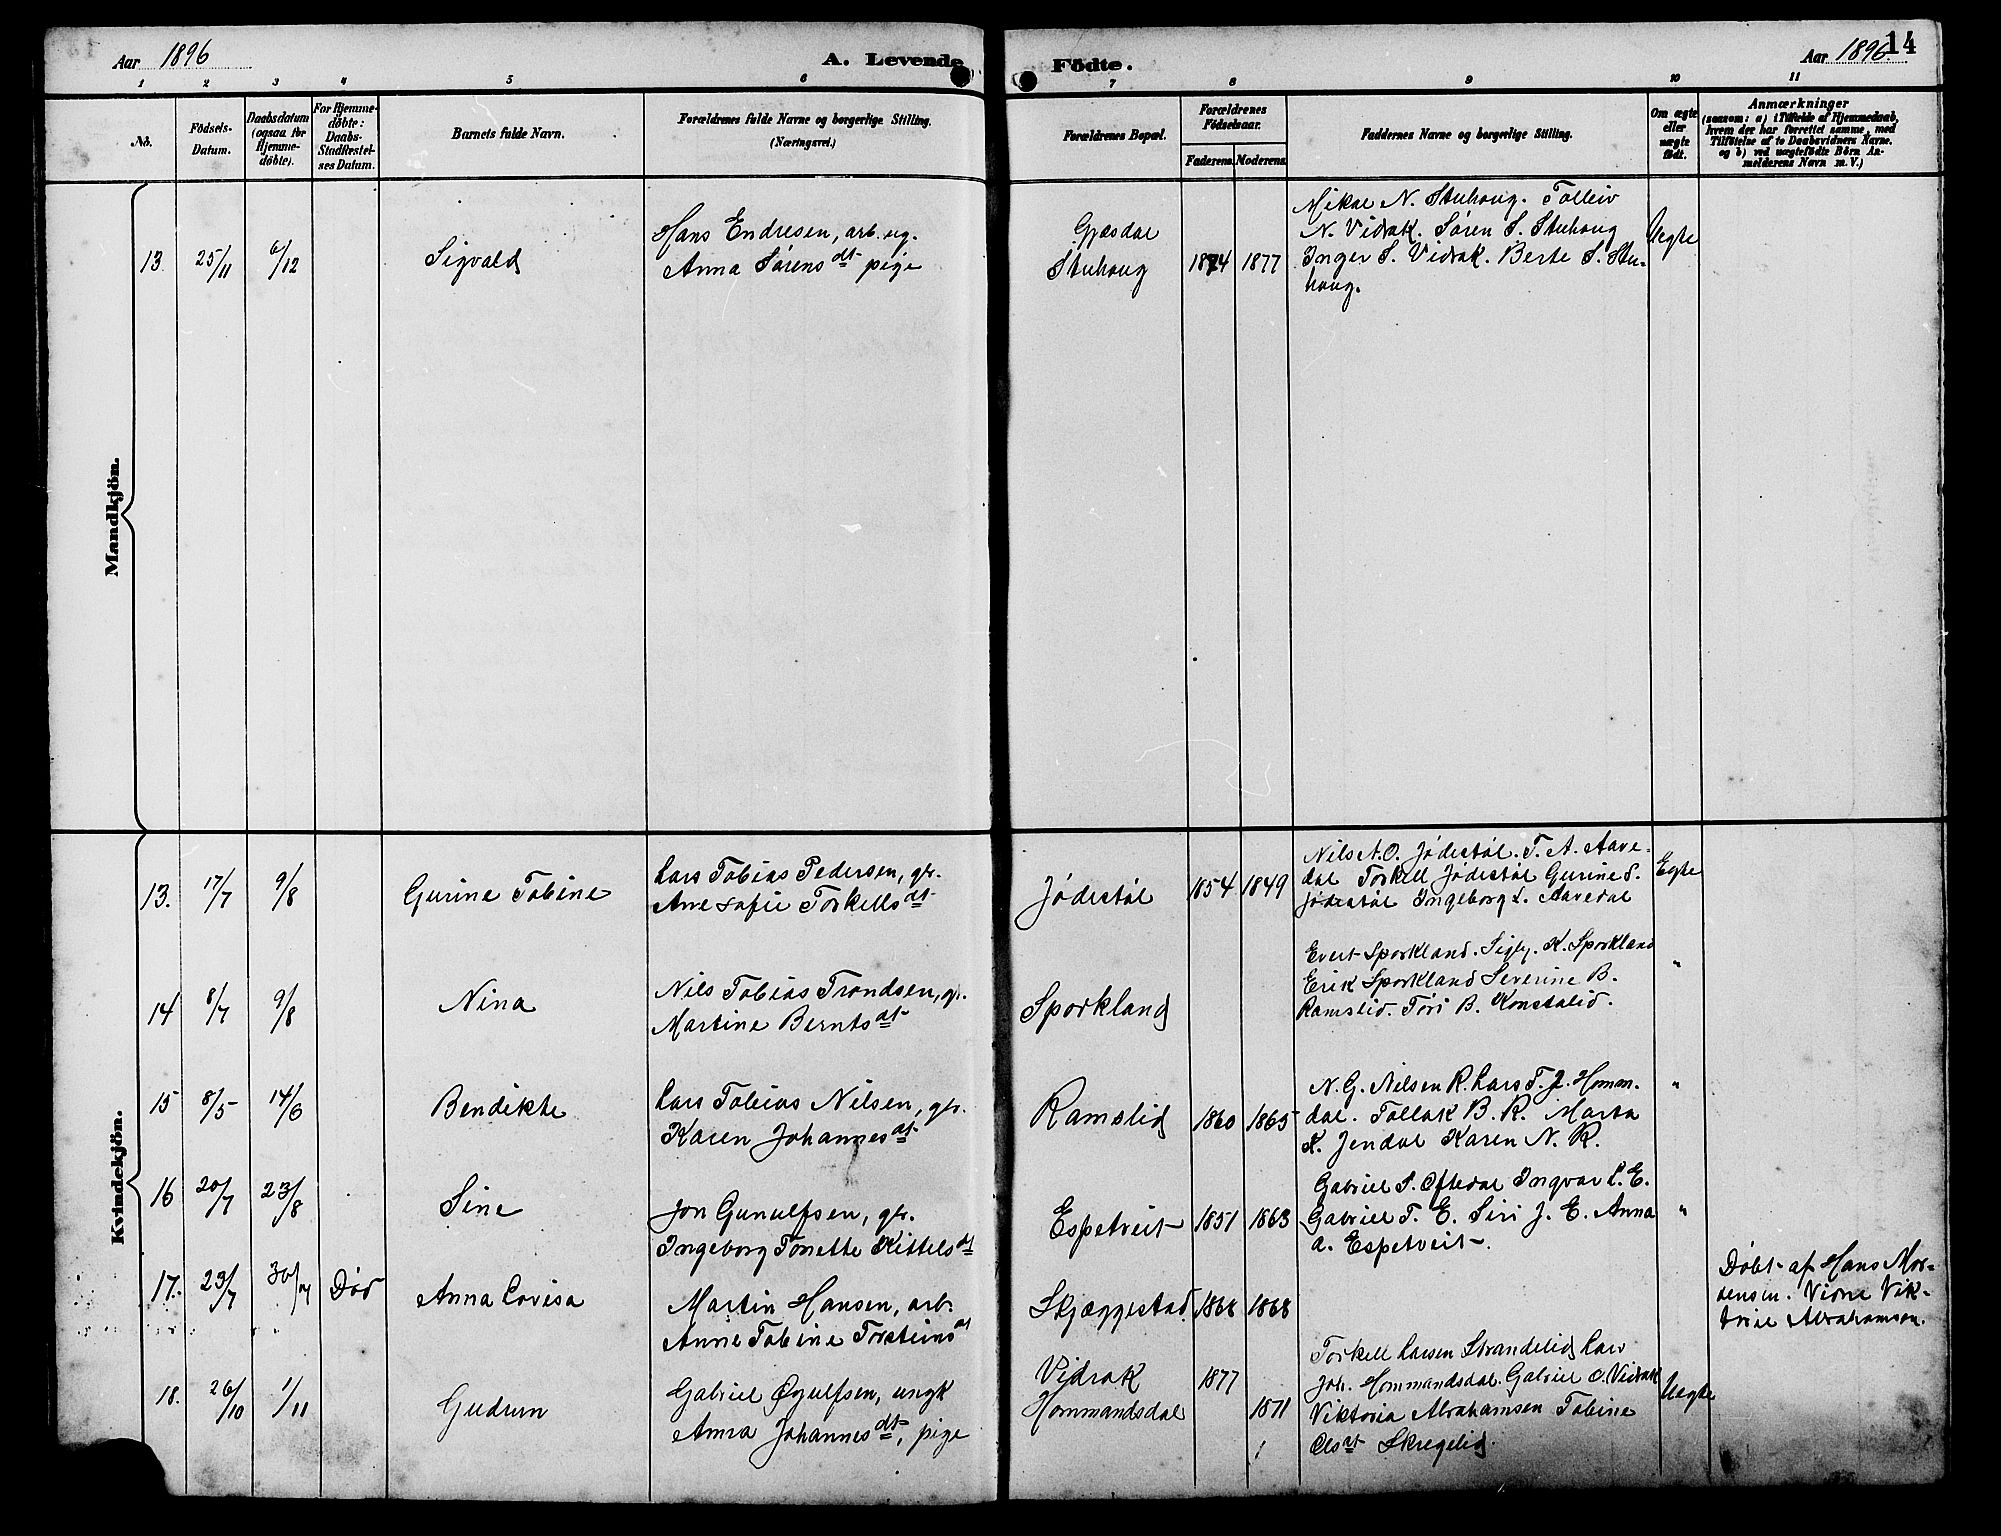 Aar 1896
A. Levende
Födte.
Aar 1896
14
1 2 3 4 5 6 7 8 9 10 11
No.
Födsels-
Datum.
Daabsdatum
(ogsaa for
Hjemme-
döbte).
For Hjemme-
döbte:
Daabs-
Stadfæstel-
ses Datum.
Barnets fulde Navn.
Forældrenes fulde Navne og borgerlige Stilling.
(Næringsvei.)
Forældrenes Bopæl.
Forældrenes
Födselsaar.
Faderens. Moderens.
Faddernes Navne og borgerlige Stilling.
Om ægte
eller
uægte
födt.
Anmærkninger
(saasom: a) i Tilfælde af Hjemmedaab,
hvem der har forrettet samme, med
Tilföielse af to Daabsvidners Navne,
og b) ved uægtefödte Börn An-
melderens Navn m. V.)
Mandkjön.
13. 25/11 6/12 Sigvald
Hans Endresen, arb. ug.
Anna Sørensdt pige
Gjæsdal
Stuhoug
1874 1877
Mikal N. Stuhoug. Tolleiv
N. Vidrak. Søren S. Stuhoug
Inger S. Vidrak. Berte S. Stu-
houg.
Uegte
Kvindekjön.
13. 17/7 9/8 Gurine Tobine
Lars Tobias Pedersen, gr.
Ane Sofie Torkellsdt
Jødestøl
1854 1849
Nils N. O. Jødestøl. T. A. Aave-
dal Torkell Jødestøl Gurine S.
Jødestøl Ingeborg L. Aavedal
Egte
14 8/7 9/8 Nina
Nils Tobias Trondsen, gr.
Martine Berntsdt
Sporkland
Evert Sporkland. Sigbj. K. Sporkland
Erik Sporkland Severine B.
Ramslid. Tori B. Konstalid.
"
15 8/5 14/6 Bendikte
Lars Tobias Nilsen, gr.
Karen Johannesdt
Ramslid
1860 1865
N. G. Nilsen R. Lars T. J. Homm-
dal. Tollak B. R. Marta
K. Jendal Karen N. R.
"
16 20/7 23/8 Sine
Jon Gunulfsen, gr.
Ingeborg Tonette Kittelsdt
Espetveit
1851 1863
Gabriel S. Oftedal Ingvar L. E.
Gabriel T. E. Siri J. E. Anna
A. Espetveit.
"
17. 23/7 30/7 Død Anna Lovisa
Martin Hansen, arb.
Anne Tobine Torsteinsdt
Skjæggestad
1868 1868
Døbt af Hans Mor-
tensen. Vidne Vik-
toria Abrahamsen.
18. 26/10 1/11 Gudrun
Gabriel Øyulfsen, ungk
Anna Johannesdt, pige
Vidrak
Hommandsdal
1877
1871
Torkell Larsen Strandelid Lars
Joh. Hommandsdal. Gabriel O. Vidrak
Viktoria Abrahamsen Tobine
Olsdt Skregelid.
Uegte